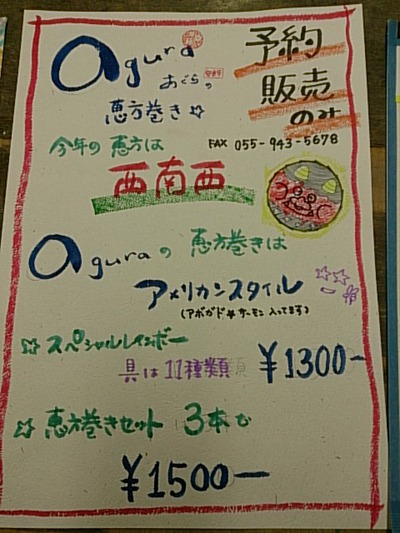 agura
あぐらの
恵方巻き☆
予約
販売
のみ
今年の恵方は
FAX 055-943-5678
西南西
aguraの恵方巻きは
アメリカンスタイル
(アボガド★サーモン入ってます)
☆スペシャルレインボー
具は11種類
¥1300-
☆恵方巻きセット 3本で
¥1500-